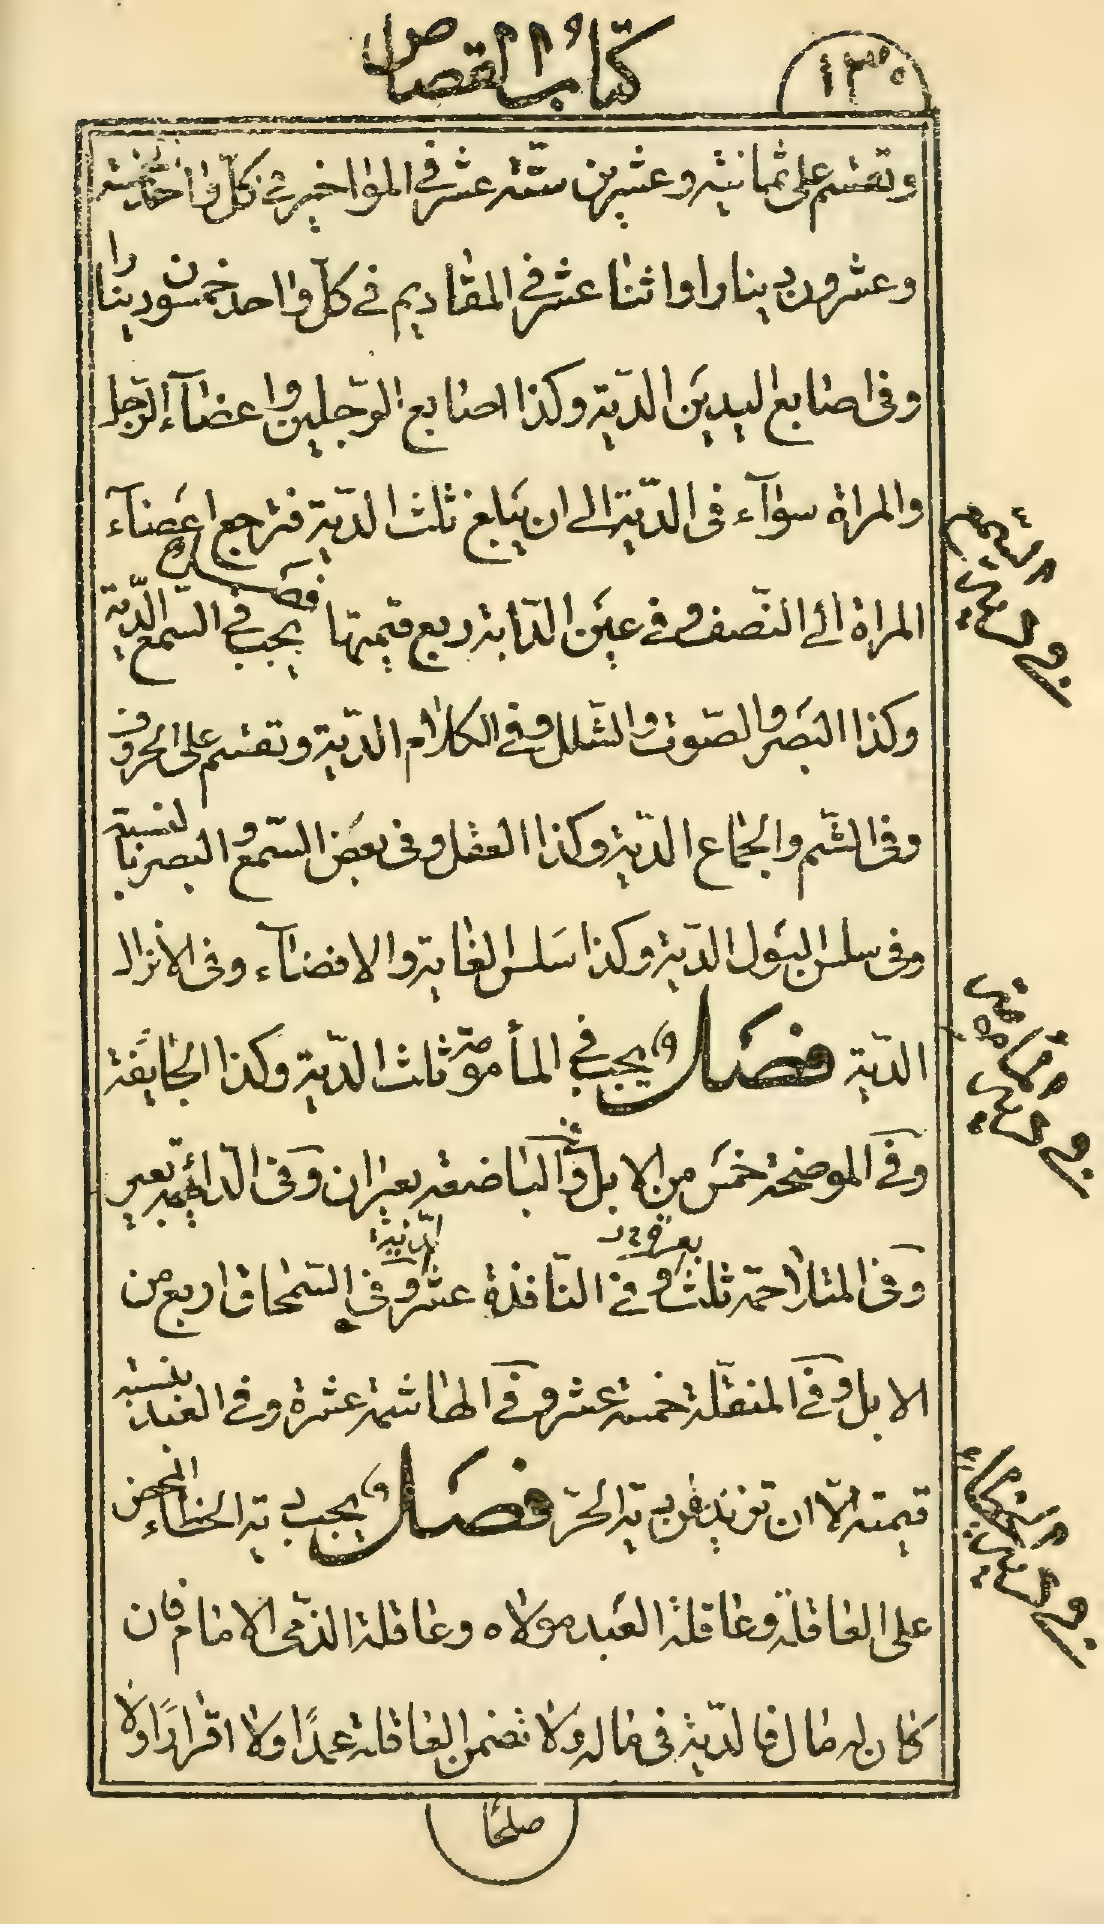 ١٣٠
كتاب القصاص
وتقسم على ثمانية وعشرين ستة عشر في المواخير في كل واحد خمسة
وعشرون دينارا واثنا عشر في المقاديم في كل واحد خمسون دينارا
وفي اصابع اليدين الدية وكذا اصابع الرجلين واعضاء الرجل
والمراة سواء في الدية الى ان يبلغ ثلث الدية فترجع اعضاء
المراة الى النصف وفي عين الدابة ربع قيمتها فصل يجب في السمع الدية
وكذا البصر والصوت والشلل وفي الكلام الدية وتقسم على الحروف
وفي الشم والجماع الدية وكذا العقل وفي بعض السمع والبصر بالنسبة
وفي سلس البول الدية وكذا سلس الغاية والافضاء وفي الانزال
الدية فصل ويجب في المأمومة ثلث الدية وكذا الجايفة
وفي الموضحة خمس من الابل وفي الباضعة بعيران وفي الدامية بعير
وفي المتلاحمة ثلث وفي النافذة عشر وفي السمحاق اربع من
الابل وفي المنقلة خمسة عشر وفي الهاشمة عشرة وفي العبد بنسبة
قيمته الا ان تزيد عن دية الحر فصل ويجب دية الخطاء المحض
على العاقلة وعاقلة العبد مولاه وعاقلة الذمي الامام فان
كان له مال فالدية في ماله ولا تضمن العاقلة عمدًا ولا اقرارًا ولا
صلحًا
في دية السمع
في دية المأمومة
في دية الخطاء